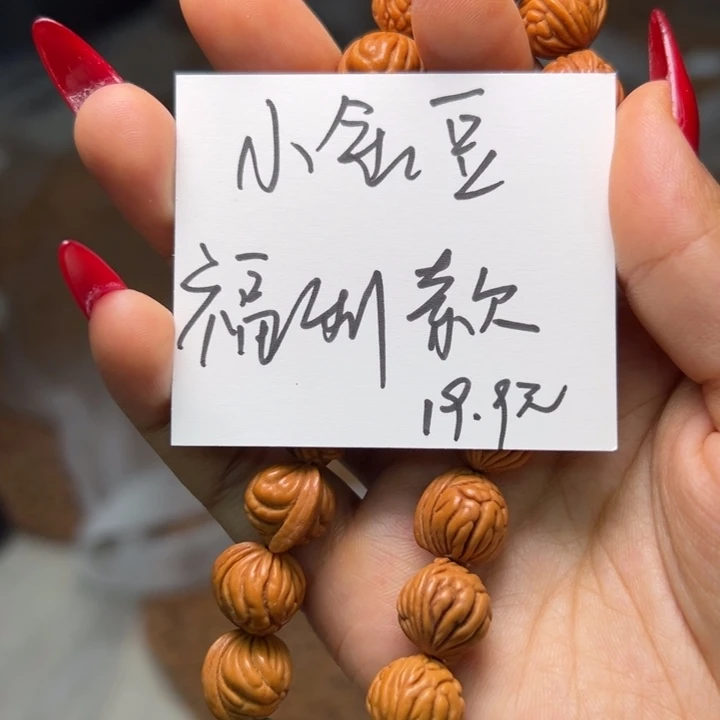 小金豆
福利款
19.9元